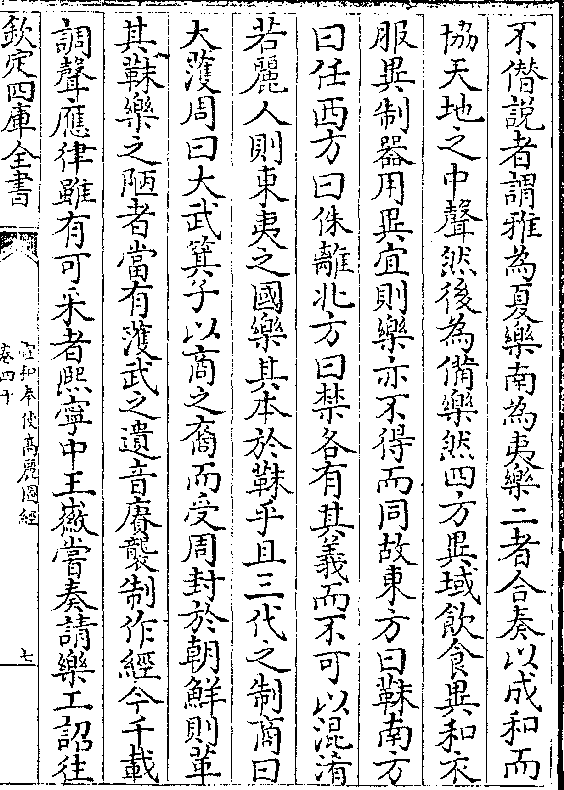 不僭説者謂雅為夏樂南為夷樂二者合奏以成和而
協天地之中聲然後為備樂然四方異域飲食異和衣
服異制器用異宜則樂亦不得而同故東方曰韎南方
曰任西方曰侏離北方曰禁各有其義而不可以混淆
若麗人則東夷之國樂其本於韎乎且三代之制商曰
大濩周曰大武箕子以商之裔而受周封於朝鮮則革
其韎樂之陋者當有濩武之遺音賡襲制作經今千載
調聲應律雖有可采者熙寧中王徽嘗奏請樂工詔往
欽定四庫全書
宣和奉使高麗圖經
卷四十
七